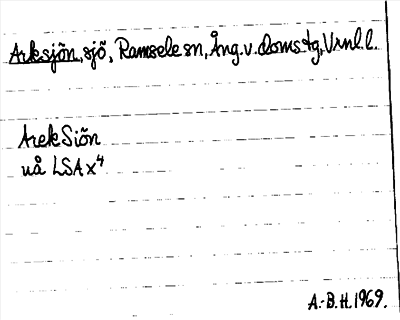 Arksjön, sjö, Ramsele sn, Ång. v. doms+g, Vrnl. l.
ArekSiön
uå LSA x4
A.-B.H. 1969.